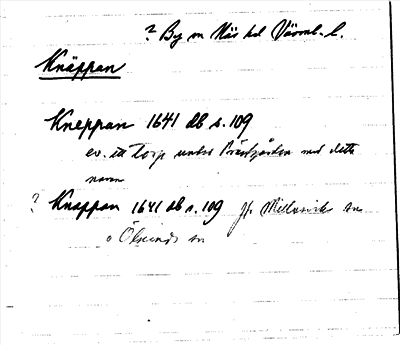 ? By m När hd Värml. l.
Knäppan
Kneppan 1641 db s. 109
ev. ett torp under Prästgården med detta
namn
? Knappan 1641 db s. 109 jfr sn
o Ölserud sn